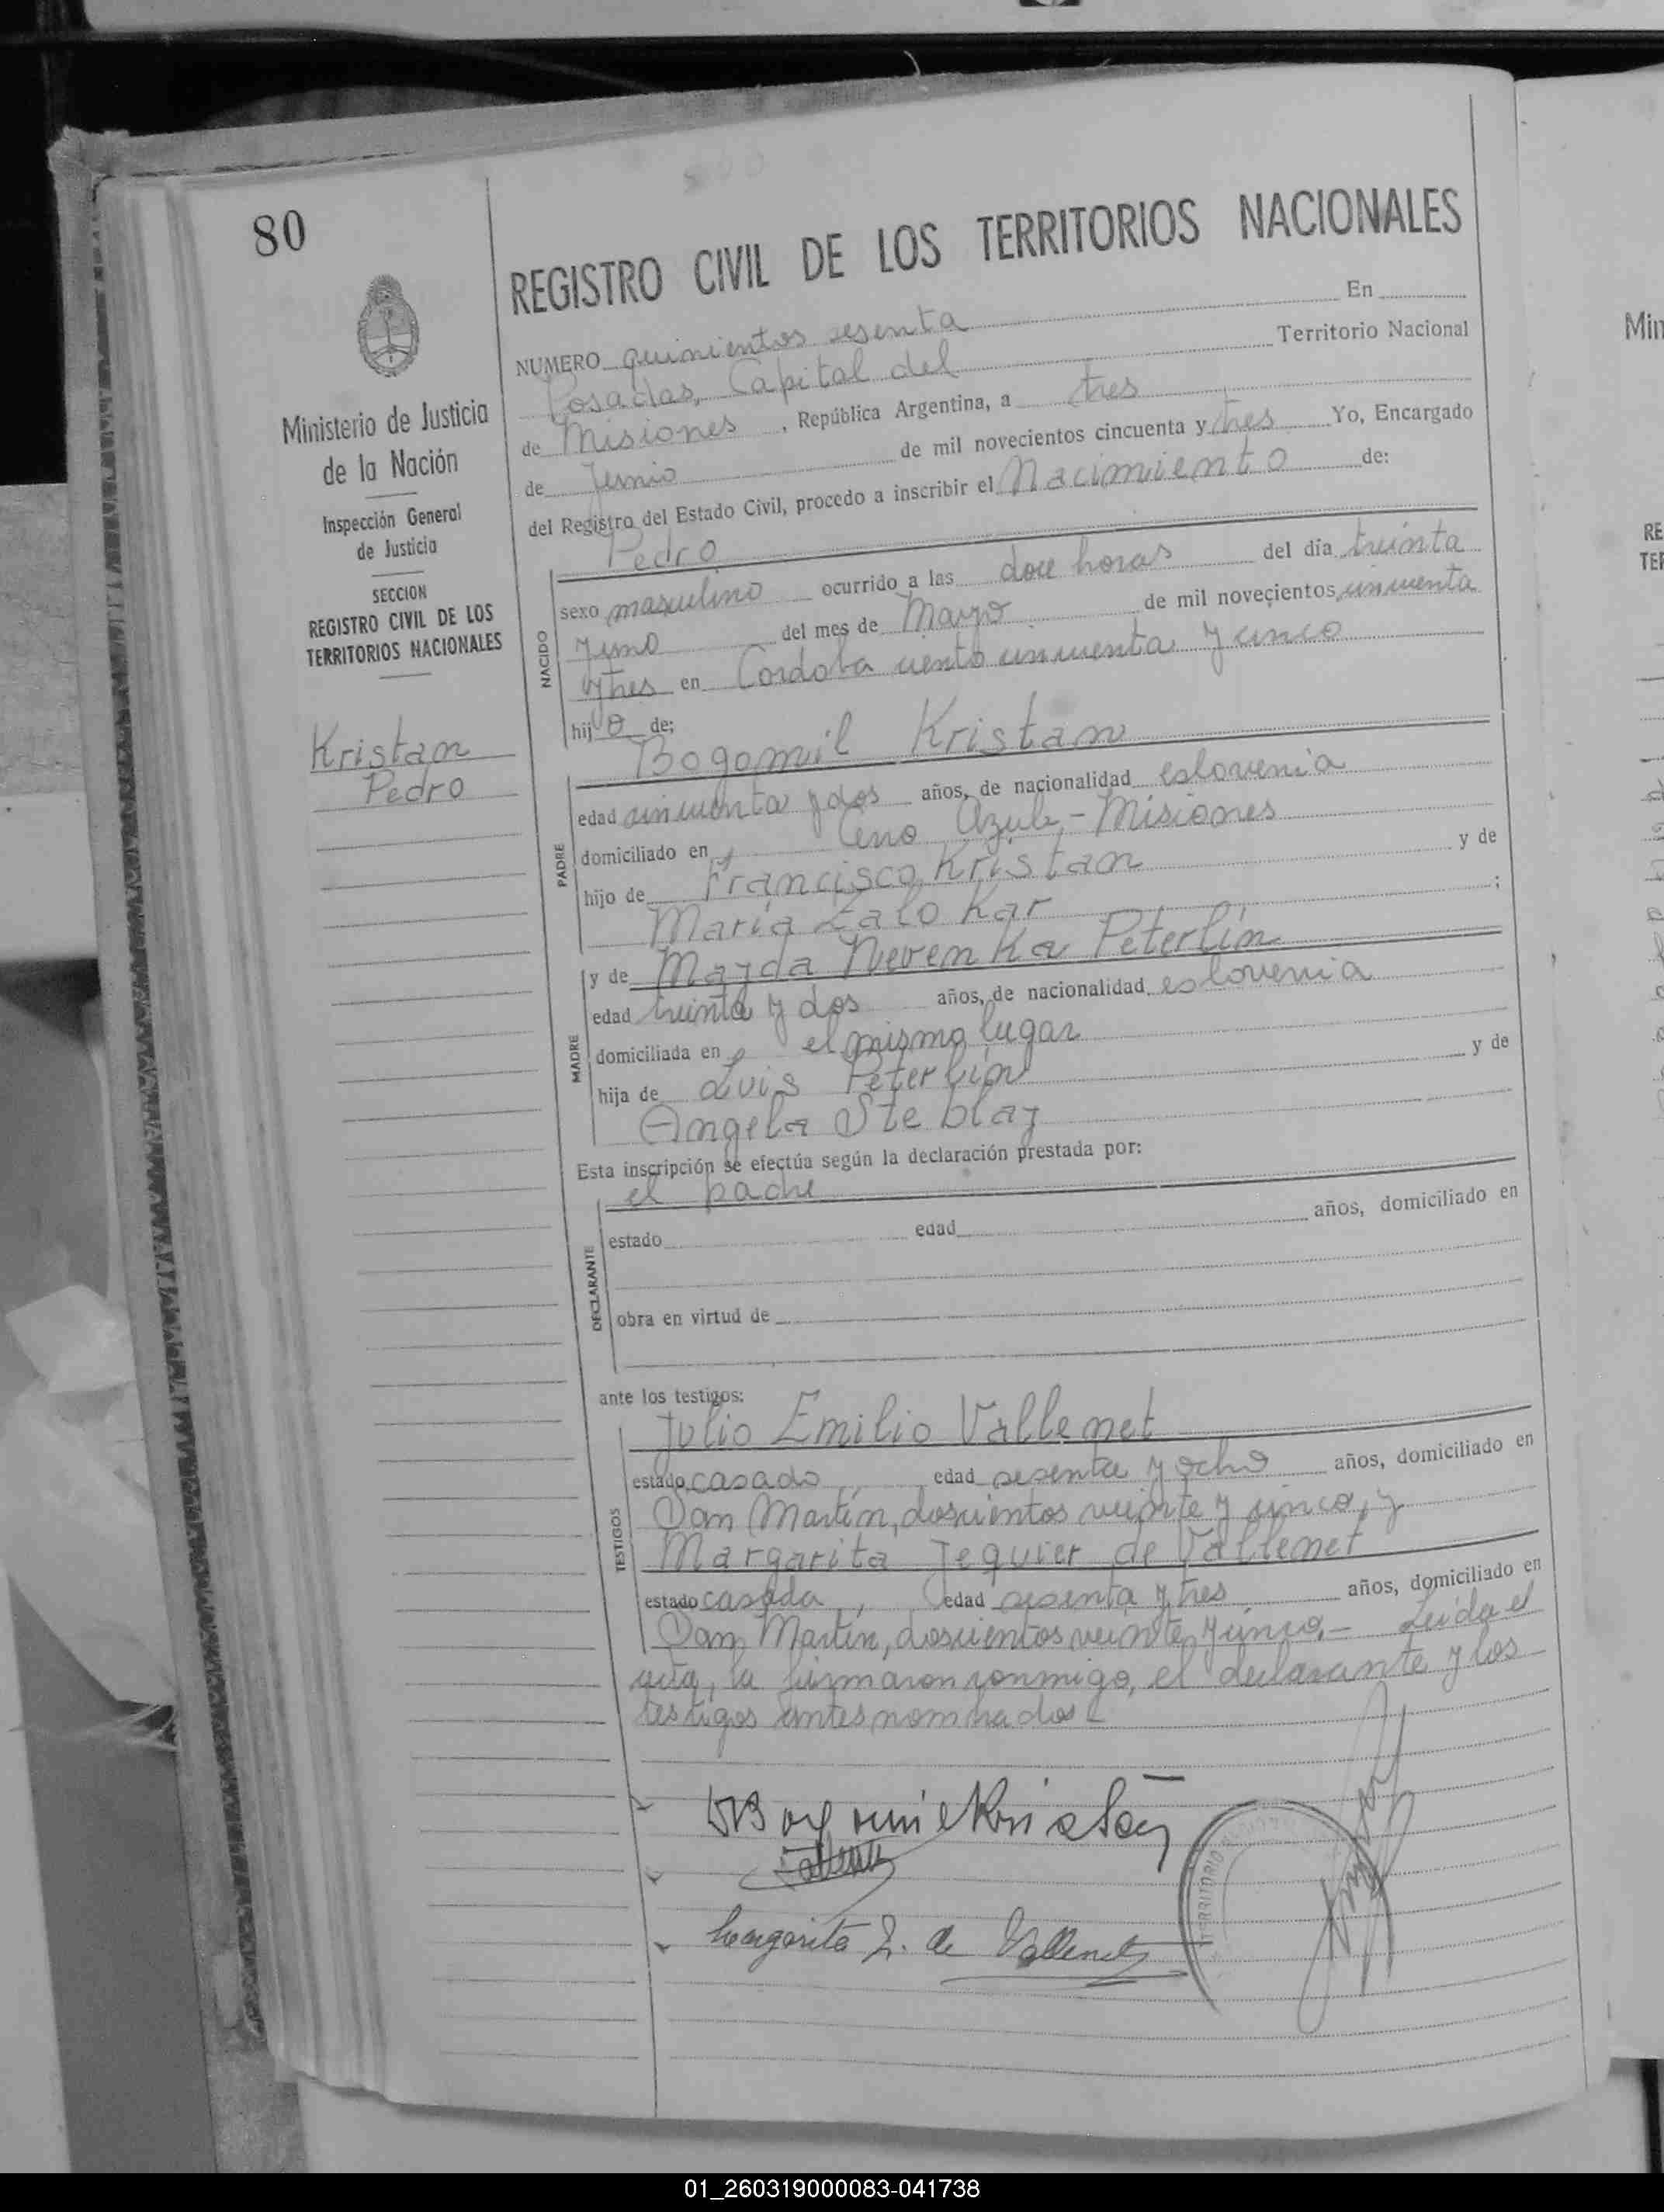 80
REGISTRO CIVIL DE LOS TERRITORIOS NACIONALES
NUMERO quinientos sesenta En
Posadas, Capital del Territorio Nacional
de Misiones, República Argentina, a tres
de Junio de mil novecientos cincuenta y tres Yo, Encargado
del Registro del Estado Civil, procedo a inscribir el Nacimiento de:
Ministerio de Justicia
de la Nación
Inspección General
de Justicia
SECCION
REGISTRO CIVIL DE LOS
TERRITORIOS NACIONALES
Kristan
Pedro
NACIDO
Pedro
sexo masculino ocurrido a las doce horas del día treinta
y uno del mes de Mayo de mil novecientos cincuenta
y tres en Cordoba ciento cincuenta y cinco
hijo de;
PADRE
Bogomil Kristan
edad cincuenta y dos años, de nacionalidad eslovenia
domiciliado en Cerro Azul,- Misiones
hijo de Francisco Kristan y de
María Zalokar ;
MADRE
y de Majda Nevenka Peterlín
edad treinta y dos años, de nacionalidad eslovenia
domiciliada en el mismo lugar
hija de Luis Peterlín y de
Angela Steblaj
Esta inscripción se efectúa según la declaración prestada por:
DECLARANTE
el padre
estado edad años, domiciliado en
obra en virtud de
ante los testigos:
TESTIGOS
Julio Emilio Vallenet
estado casado, edad sesenta y ocho años, domiciliado en
San Martín, doscientos veinte y cinco, y
Margarita Jequier de Vallenet
estado casada, edad sesenta y tres años, domiciliado en
San Martín, doscientos veinte y cinco.- Leida el
acta, la firmaron conmigo, el declarante y los
testigos antes nombrados
Bogomil Kristan
Margarita J. de Vallenet
TERRITORIO
Min
RE
TER
01_260319000083-041738